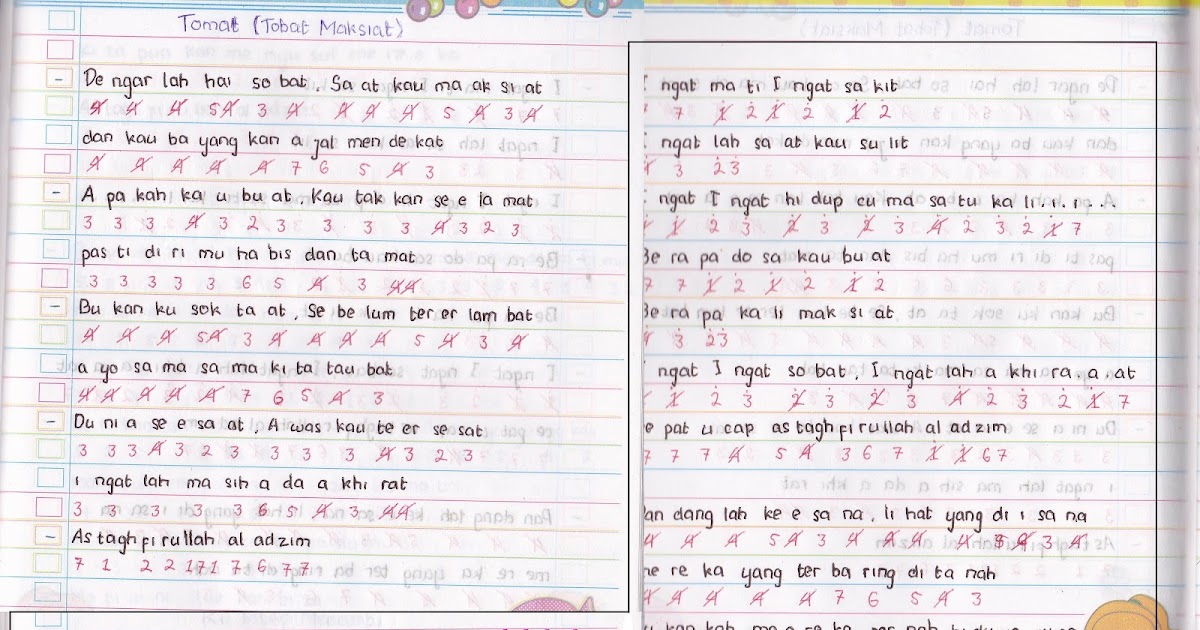 Tomat (Tobat Maksiat)
- De ngar lah hai so bat, Sa at kau ma ak si at
4 4 4 54 3 4 4 4 4 5 4 3 4
dan kau ba yang kan a jal men de kat
4 4 4 4 4 7 6 5 4 3
- A pa kah ka u bu at, Kau tak kan se e la mat
3 3 3 4 3 2 3 3 3 3 4 3 2 3
pas ti di ri mu ha bis dan ta mat
3 3 3 3 3 6 5 4 3 44
- Bu kan ku sok ta at, Se be lum ter er lam bat
4 4 4 54 3 4 4 4 4 5 4 3 4
a yo sa ma sa ma ki ta tau bat
4 4 4 4 4 7 6 5 4 3
- Du ni a se e sa at, A was kau te er se sat
3 3 3 4 3 2 3 3 3 3 4 3 2 3
i ngat lah ma sih a da a khi rat
3 3 3 3 3 6 5 4 3 44
- As tagh fi rullah al adzim
7 1 2 2 171 7 6 77
ngat ma ti I ngat sa kit
7 1 2 1 2 1 2
ngat lah sa at kau su lit
3 23
ngat I ngat hi dup cu ma sa tu ka li. i. i. i. .
1 2 3 2 3 2 3 4 2 3 2 1 7
Be ra pa do sa kau bu at
7 7 1 2 1 2 1 2
Be ra pa ka li mak si at
3 23
ngat I ngat so bat, I ngat lah a khi ra. a. at
1 2 3 2 3 2 3 4 2 3 2 1 7
e pat u cap as tagh fi rullah al adzim
7 7 7 4 5 4 3 6 7 1 1 6 7
an dang lah ke e sa na, li hat yang di i sa na
4 4 4 5 4 3 4 4 4 4 5 4 3 4
me re ka yang ter ba ring di ta nah
4 4 4 4 4 7 6 5 4 3